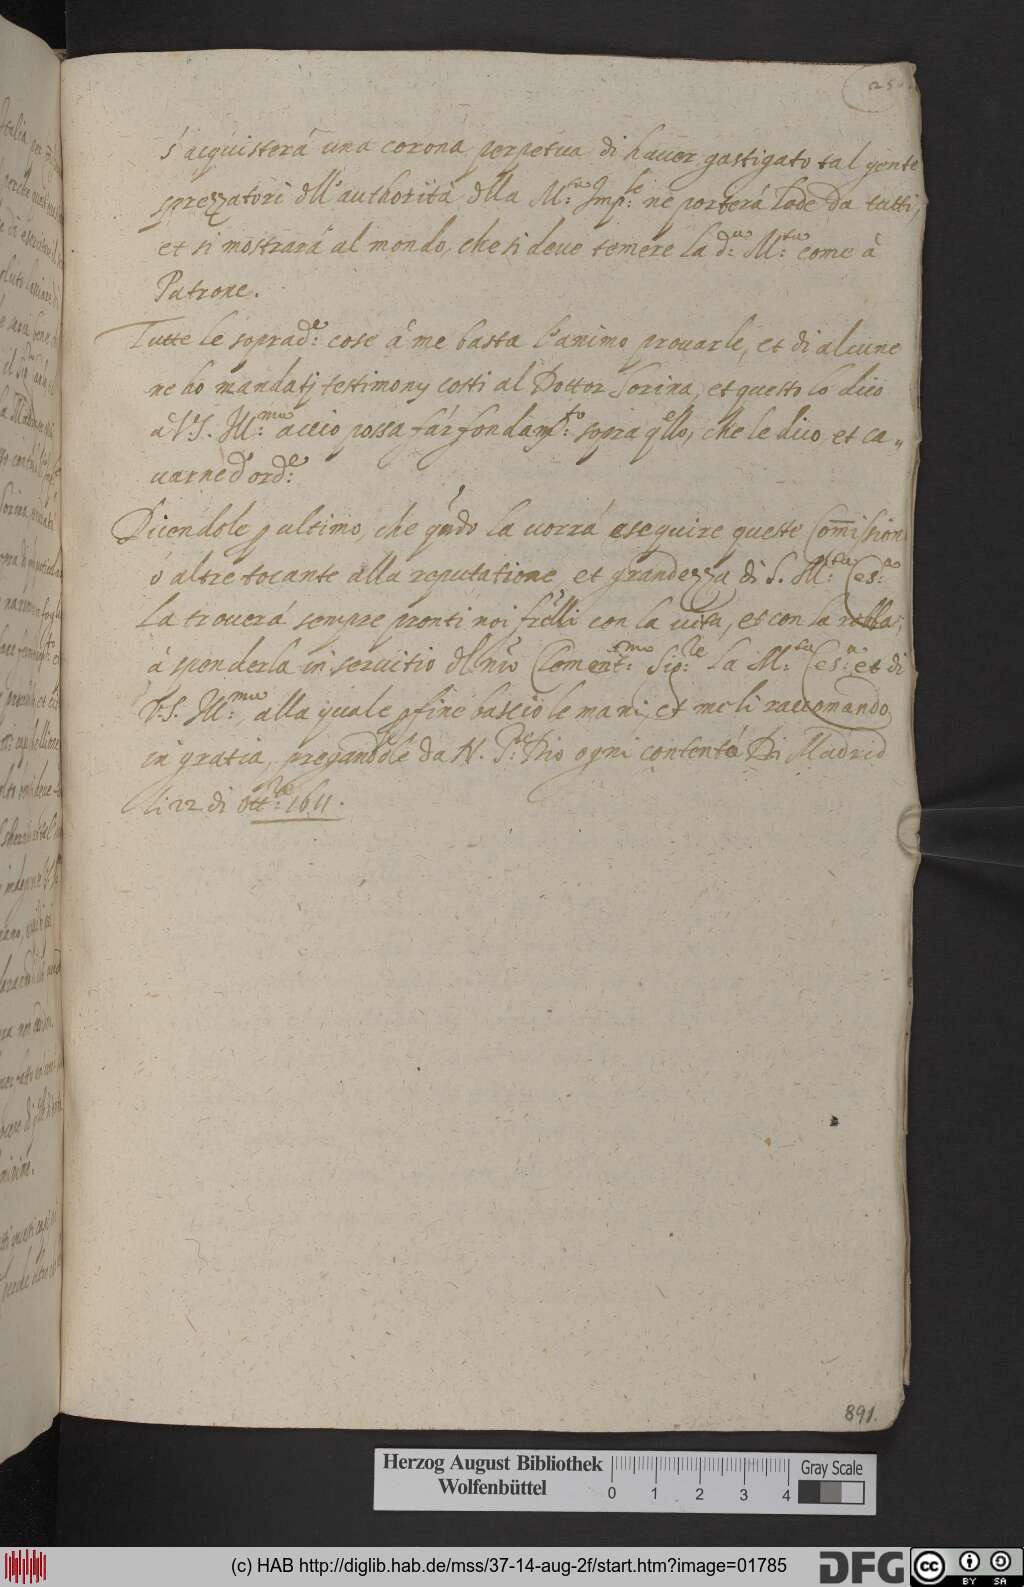 s'acquisterà una corona perpetua di hauer gastigato tal gente
sprezzatori dll'authorità dlla M:ta Imp:le ne porterà lode da tutti,
et si mostrarà al mondo, che si deue temere la d:a M:ta come à
Patrone.
Tutte le soprad:e cose à me basta l'animo prouarle, et di alcune
ne ho mandatj testimonÿ costi al Dottor Sorina, et questo lo dico
à V.S. Ill:ma accio possa fàr fondam:to sopra qllo, che le dico, et ca„
uarne d ord:e
Dicendole p ultimo, che qndo la uorrà eseguire queste Comission
ò altre tocante alla reputatione, et grandezza di S. M:ta Ces:a
la trouerà sempre pronti noi frelli con la uita, et con la robba,
à spenderla in seruitio dl nro Clement:mo Sig:le la M:ta Ces:a et di
V.S. Ill:ma, alla quale p fine bascio le mani, et me li raccomando
in gratia, pregandole da N. S:re Dio ogni contento Di Madrid
li 22 di ott:re 1611.
891.
Herzog August Bibliothek
Wolfenbüttel
0 1 2 3 4
Gray Scale
(c) HAB http://diglib.hab.de/mss/37-14-aug-2f/start.htm?image=01785
DFG
cc BY SA